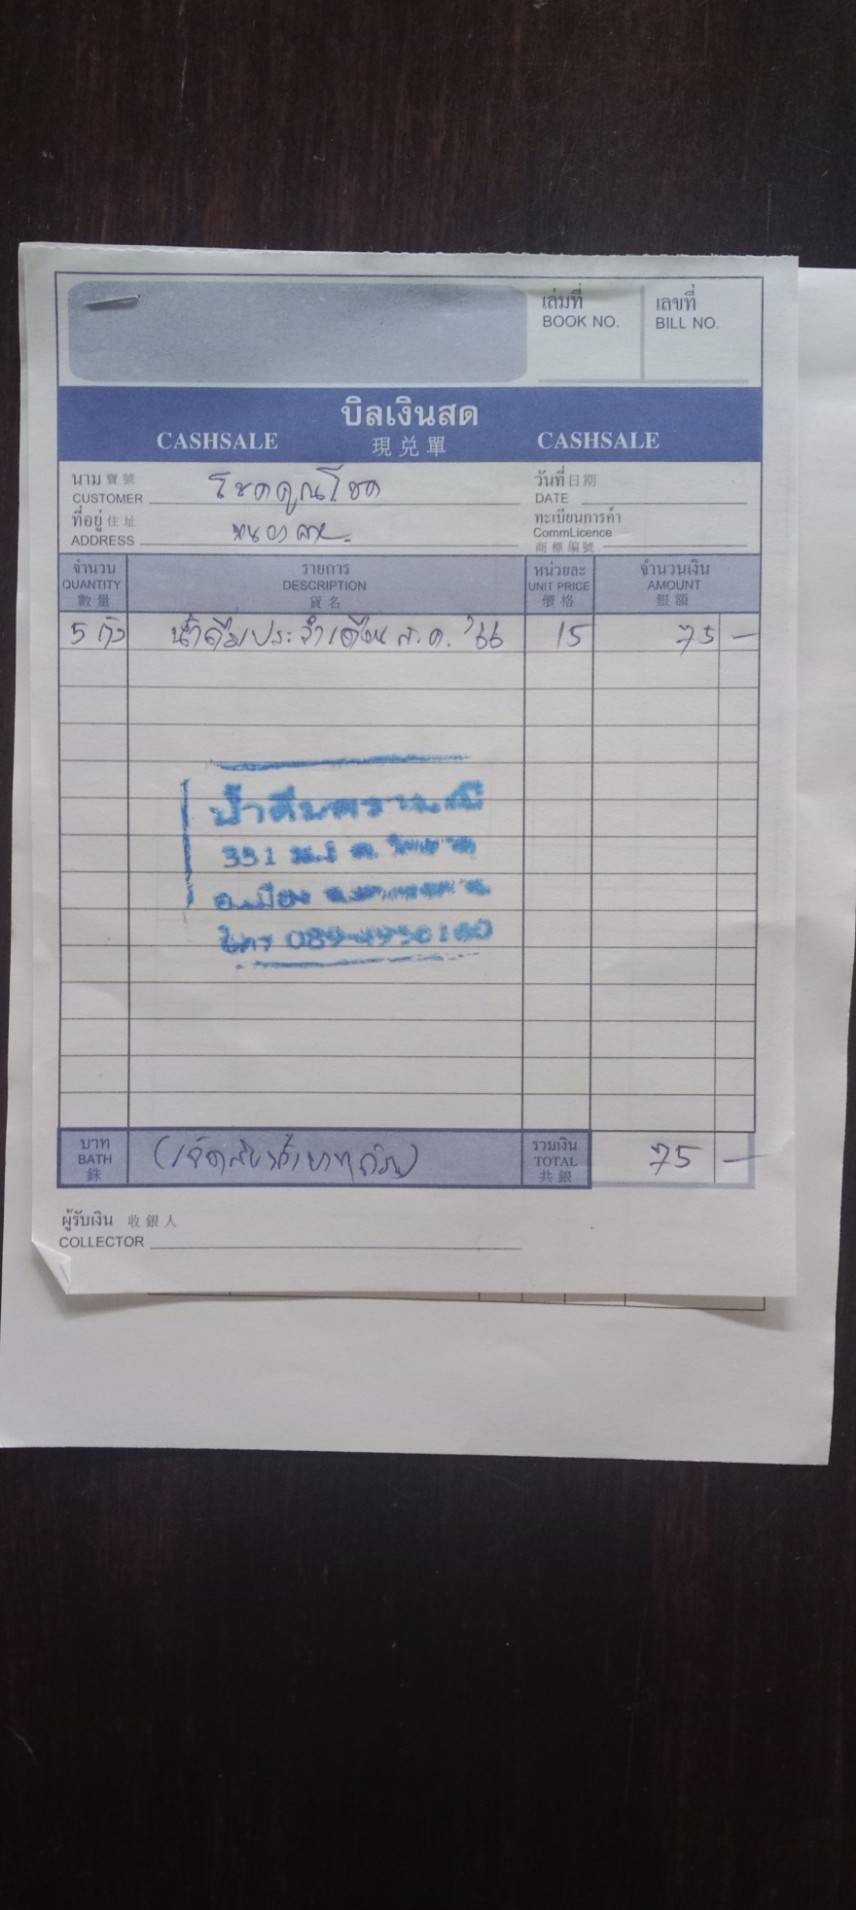 เล่มที่ เลขที่
BOOK NO. BILL NO.
บิลเงินสด
CASHSALE 現兌單 CASHSALE
นาม 寶號 โชคคูณโชค วันที่ 日期
CUSTOMER DATE
ที่อยู่ 住址 ทะเบียนการค้า
ADDRESS CommLicence
商標編號
จำนวน รายการ หน่วยละ จำนวนเงิน
QUANTITY DESCRIPTION UNIT PRICE AMOUNT
數量 貨名 價格 銀額
5 ถัง น้ำดื่มประจำเดือน ส.ค. '66 15 75 –
น้ำดื่ม
331
อ.เมือง
โทร 089-4950160
บาท (เจ็ดสิบห้าบาทถ้วน) รวมเงิน 75 –
BATH TOTAL
銖 共銀
ผู้รับเงิน 收銀人
COLLECTOR